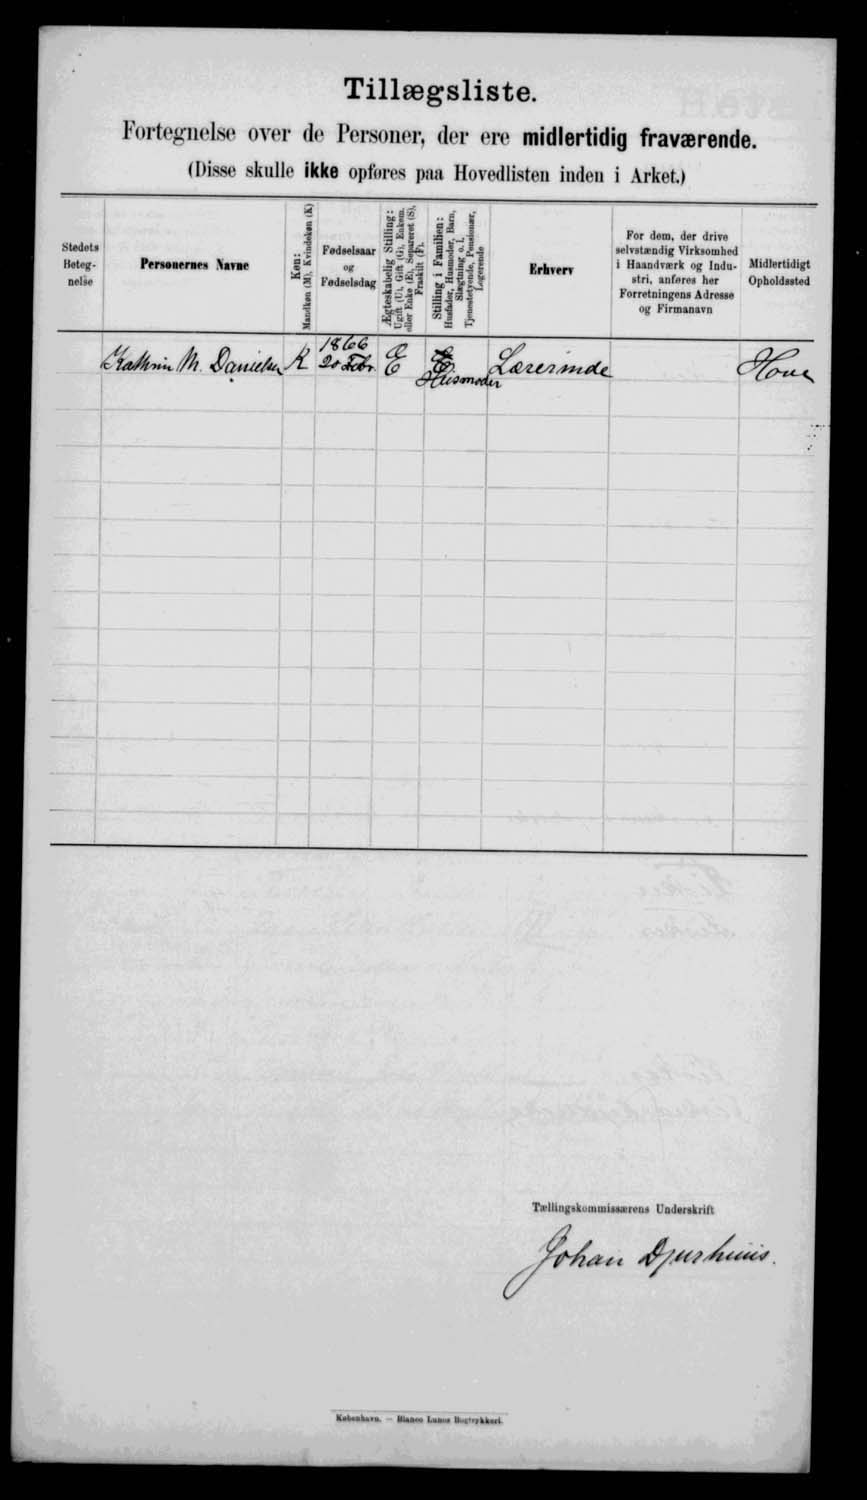 Tillægsliste.
Fortegnelse over de Personer, der ere midlertidig fraværende.
(Disse skulle ikke opføres paa Hovedlisten inden i Arket.)
Stedets
Beteg-
nelse
Personernes Navne
Køn:
Mandkøn (M), Kvindekøn (K)
Fødselsaar
og
Fødselsdag
Ægteskabelig Stilling:
Ugift (U), Gift (G), Enkem.
eller Enke (E), Separeret (S),
Fraskilt (F).
Stilling i Familien:
Husfader, Husmoder, Barn,
Slægtning o. l.
Tjenestetyende, Pensionær,
Logerende
Erhverv
For dem, der drive
selvstændig Virksomhed
i Haandværk og Indu-
stri, anføres her
Forretningens Adresse
og Firmanavn
Midlertidigt
Opholdssted
Kathrin M. Danielsen K 1866
20 Febr. E Husmoder Lærerinde Hove
Tællingskommissærens Underskrift
Johan Djurhuus.
København. — Bianco Lunos Bogtrykkeri.